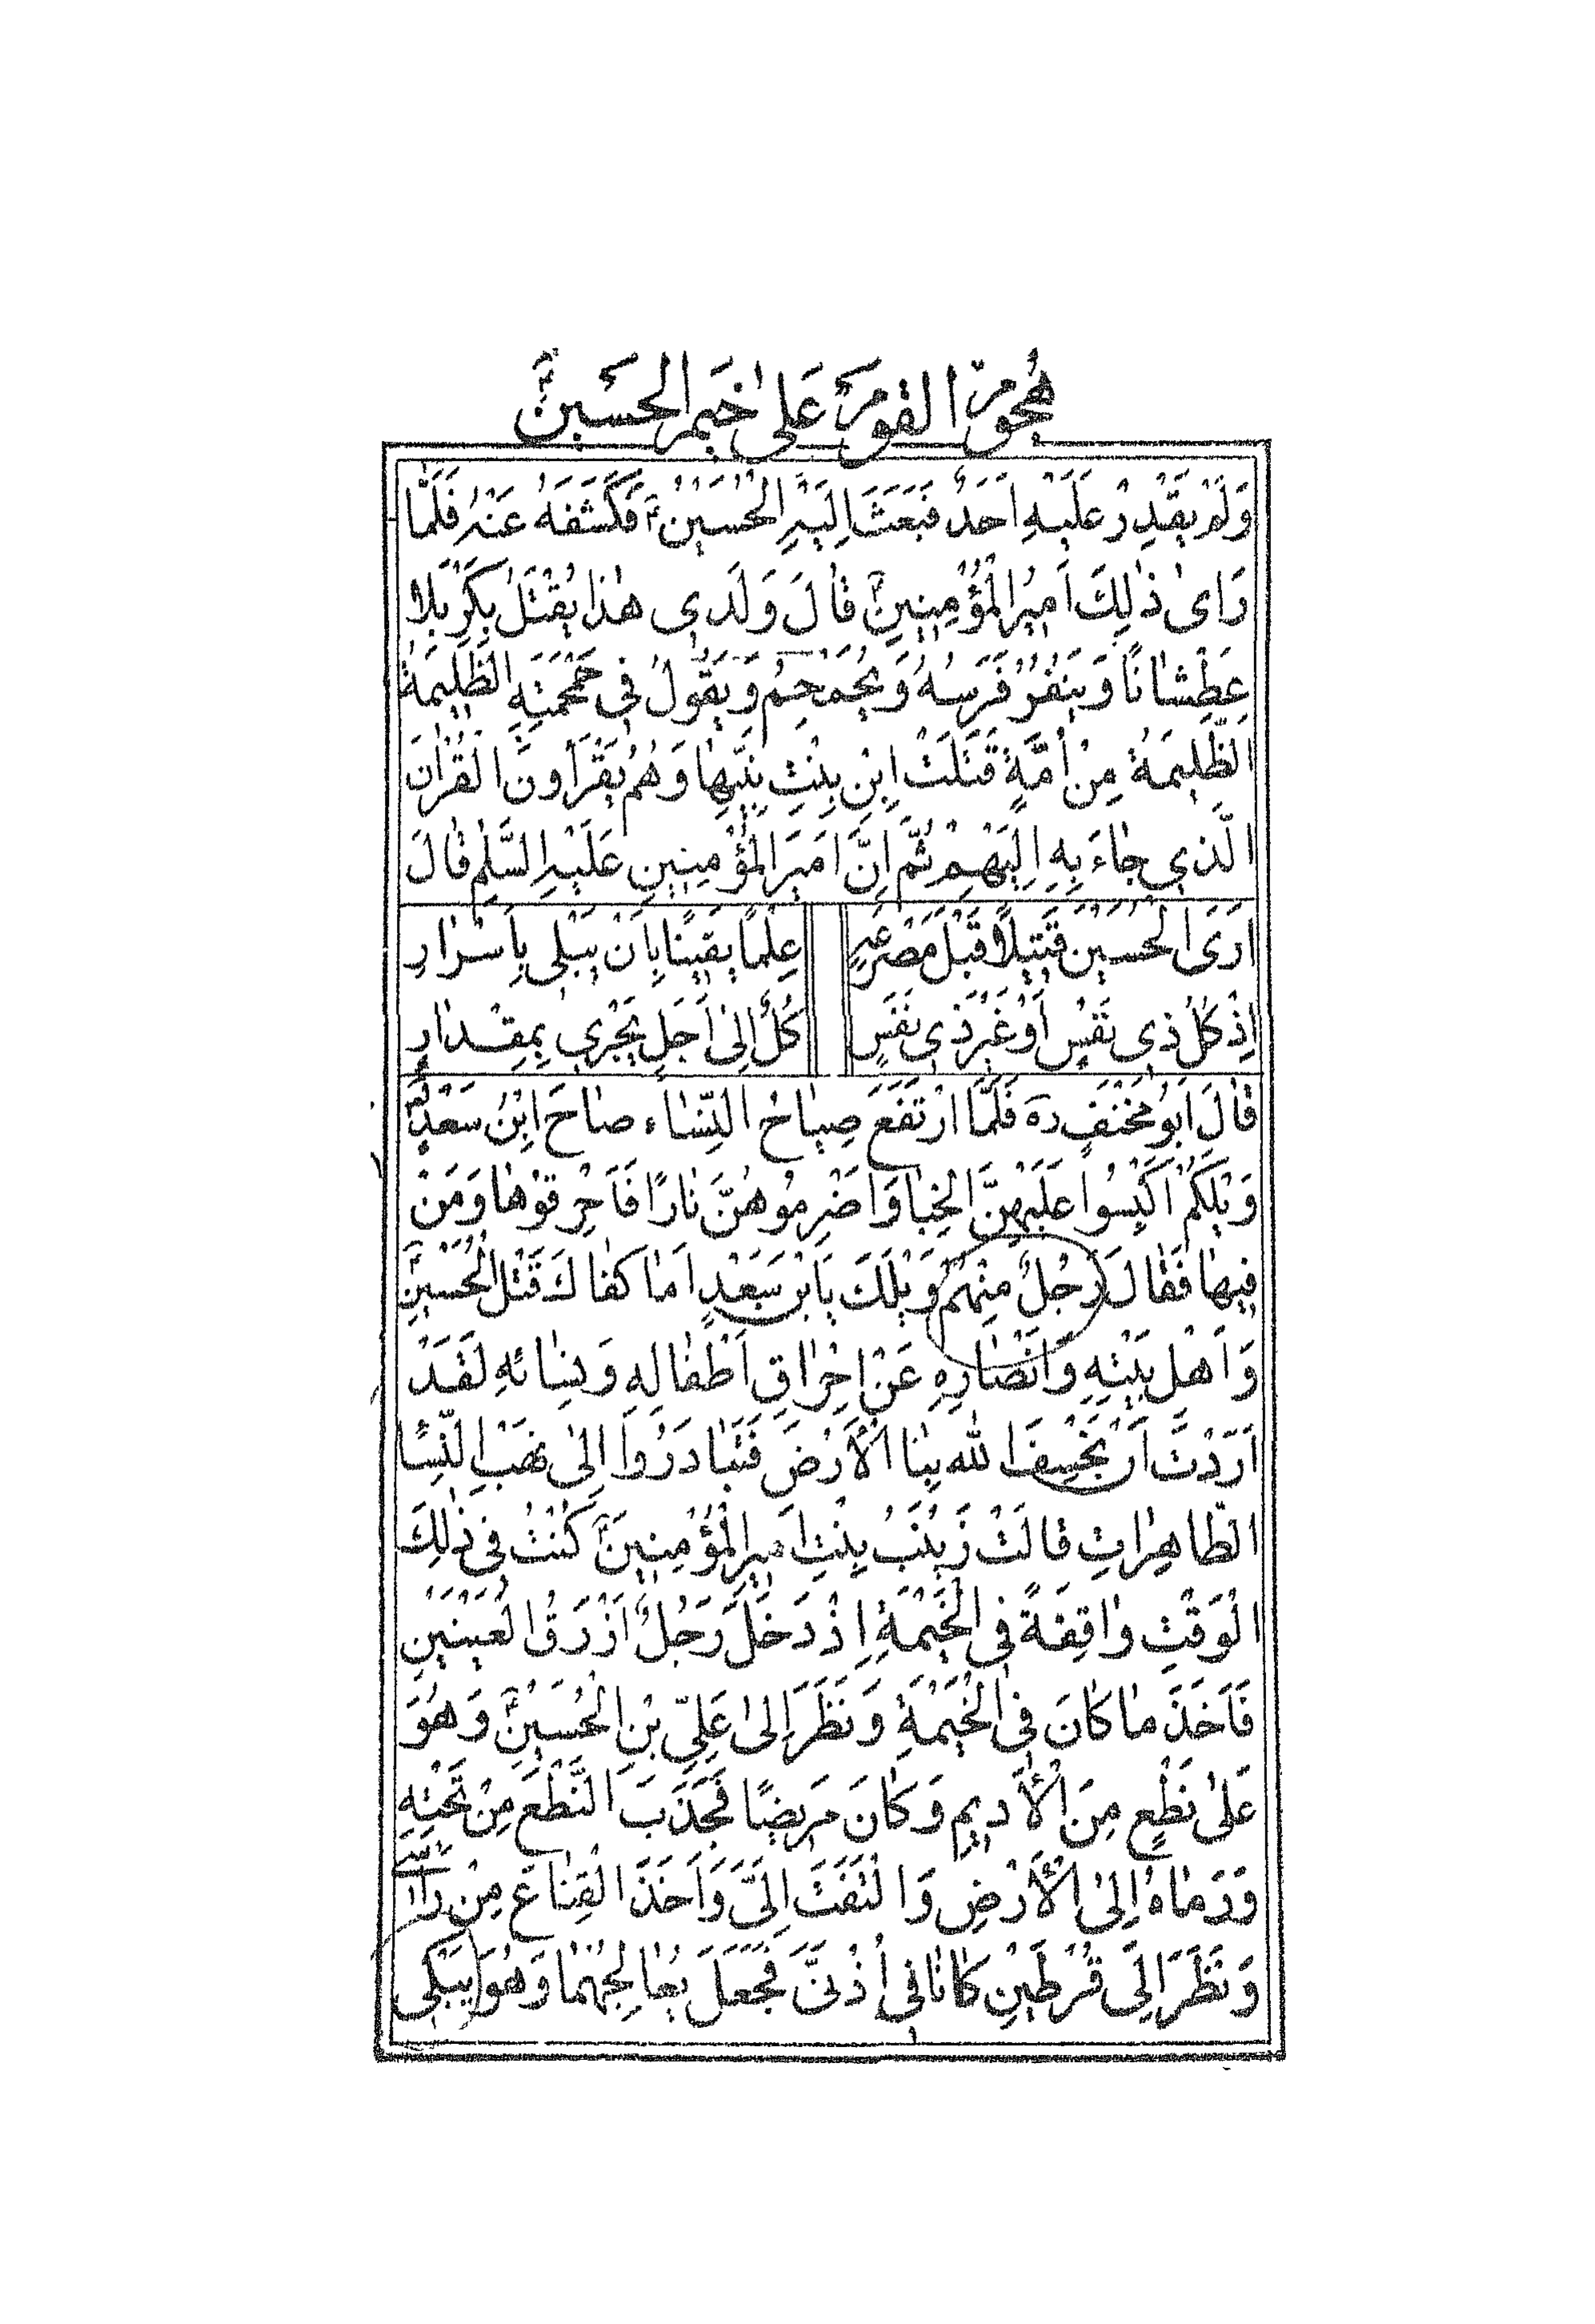 هُجُومُ الْقَوْمِ عَلىٰ خِيَمِ الْحُسَيْنِ ؑ
وَلَمْ يَقْدِرْ عَلَيْهِ اَحَدٌ فَبَعَثَ اِلَيْهِ الْحُسَيْنُ ؑ فَكَشَفَهُ عَنْهُ فَلَمَّا
رَاىٰ ذٰلِكَ اَمِيْرُ الْمُؤْمِنِينَ ؑ قٰالَ وَلَدِي هٰذٰا يُقْتَلُ بِكَرْبَلا
عَطْشٰانًا وَيَنْفُرُ فَرَسُهُ وَيُحَمْحِمُ وَيَقُولُ فِي حَمْحَمَتِهِ الظَّلِيمَةُ
الظَّلِيمَةُ مِنْ اُمَّةٍ قَتَلَتْ اِبْنِ بِنْتِ نَبِيِّهٰا وَهُمْ يَقْرَاوُنَ الْقُرْاٰنَ
الَّذِي جٰاءَ بِهِ اِلَيْهِمْ ثُمَّ اِنَّ اَمِيرَ الْمُؤْمِنِينِ عَلَيْهِ السَّلٰمِ قٰالَ
اَرَى الْحُسَيْنَ قَتِيْلًا قَبْلَ مَصْرَعِهِ عِلْمًا يَقِيْنًا بِاَنْ يَبْلٰى بِاَسْرٰارِ
اِذْ كُلُّ ذِي نَفَسٍ اَوْ غَيْرَ ذِي نَفَسٍ كُلٌّ اِلىٰ اَجَلٍ يَجْرِي بِمِقْدٰارٍ
قٰالَ اَبُو مِخْنَفٍ رَهَ فَلَمَّا ارْتَفَعَ صِيٰاحُ النِّسٰاءِ صٰاحَ ابْنُ سَعْدٍ
وَيْلَكُمْ اكْبِسُوا عَلَيْهِنَّ الْخِبٰا وَاضْرِمُوهُنَّ نٰارًا فَاَحْرِقُوْهٰا وَمَنْ
فِيهٰا فَقٰالَ رَجُلٌ مِنْهُمْ وَيْلَكَ يَابْنَ سَعْدٍ اَمٰا كَفٰاكَ قَتْلُ الْحُسَيْنِ ؑ
وَاَهْلِ بَيْتِهِ وَاَنْصٰارِهِ عَنْ اِحْرٰاقِ اَطْفٰالِهِ وَنِسٰائِهِ لَقَدْ
اَرَدْتَ اَنْ يَخْسِفَ اللهُ بِنٰا الْاَرْضَ فَتَبٰادَرُوا اِلىٰ نَهْبِ النِّسٰا
الطّٰاهِرٰاتِ قٰالَتْ زَيْنَبُ بِنْتِ اَمِيرِ الْمُؤْمِنِينَ ؑ كُنْتُ فِي ذٰلِكَ
الْوَقْتِ وٰاقِفَةً فِي الْخَيْمَةِ اِذْ دَخَلَ رَجُلٌ اَزْرَقُ الْعَيْنَيْنِ
فَاَخَذَ مٰا كٰانَ فِي الْخَيْمَةِ وَنَظَرَ اِلىٰ عَلِيِّ بْنِ الْحُسَيْنِ ؑ وَهُوَ
عَلىٰ نَطْعٍ مِنَ الْاَدِيمِ وَكٰانَ مَرِيضًا فَجَذَبَ النَّطْعَ مِنْ تَحْتِهِ
وَرَمٰاهُ اِلىٰ الْاَرْضِ وَالْتَفَتَ اِلَيَّ وَاَخَذَ الْقِنٰاعَ مِنْ رَأْسِي
وَنَظَرَ اِلىٰ قُرْطَيْنِ كٰانٰا فِي اُذُنَيَّ فَجَعَلَ يُعٰالِجُهُمٰا وَهُوَ يَبْكِي